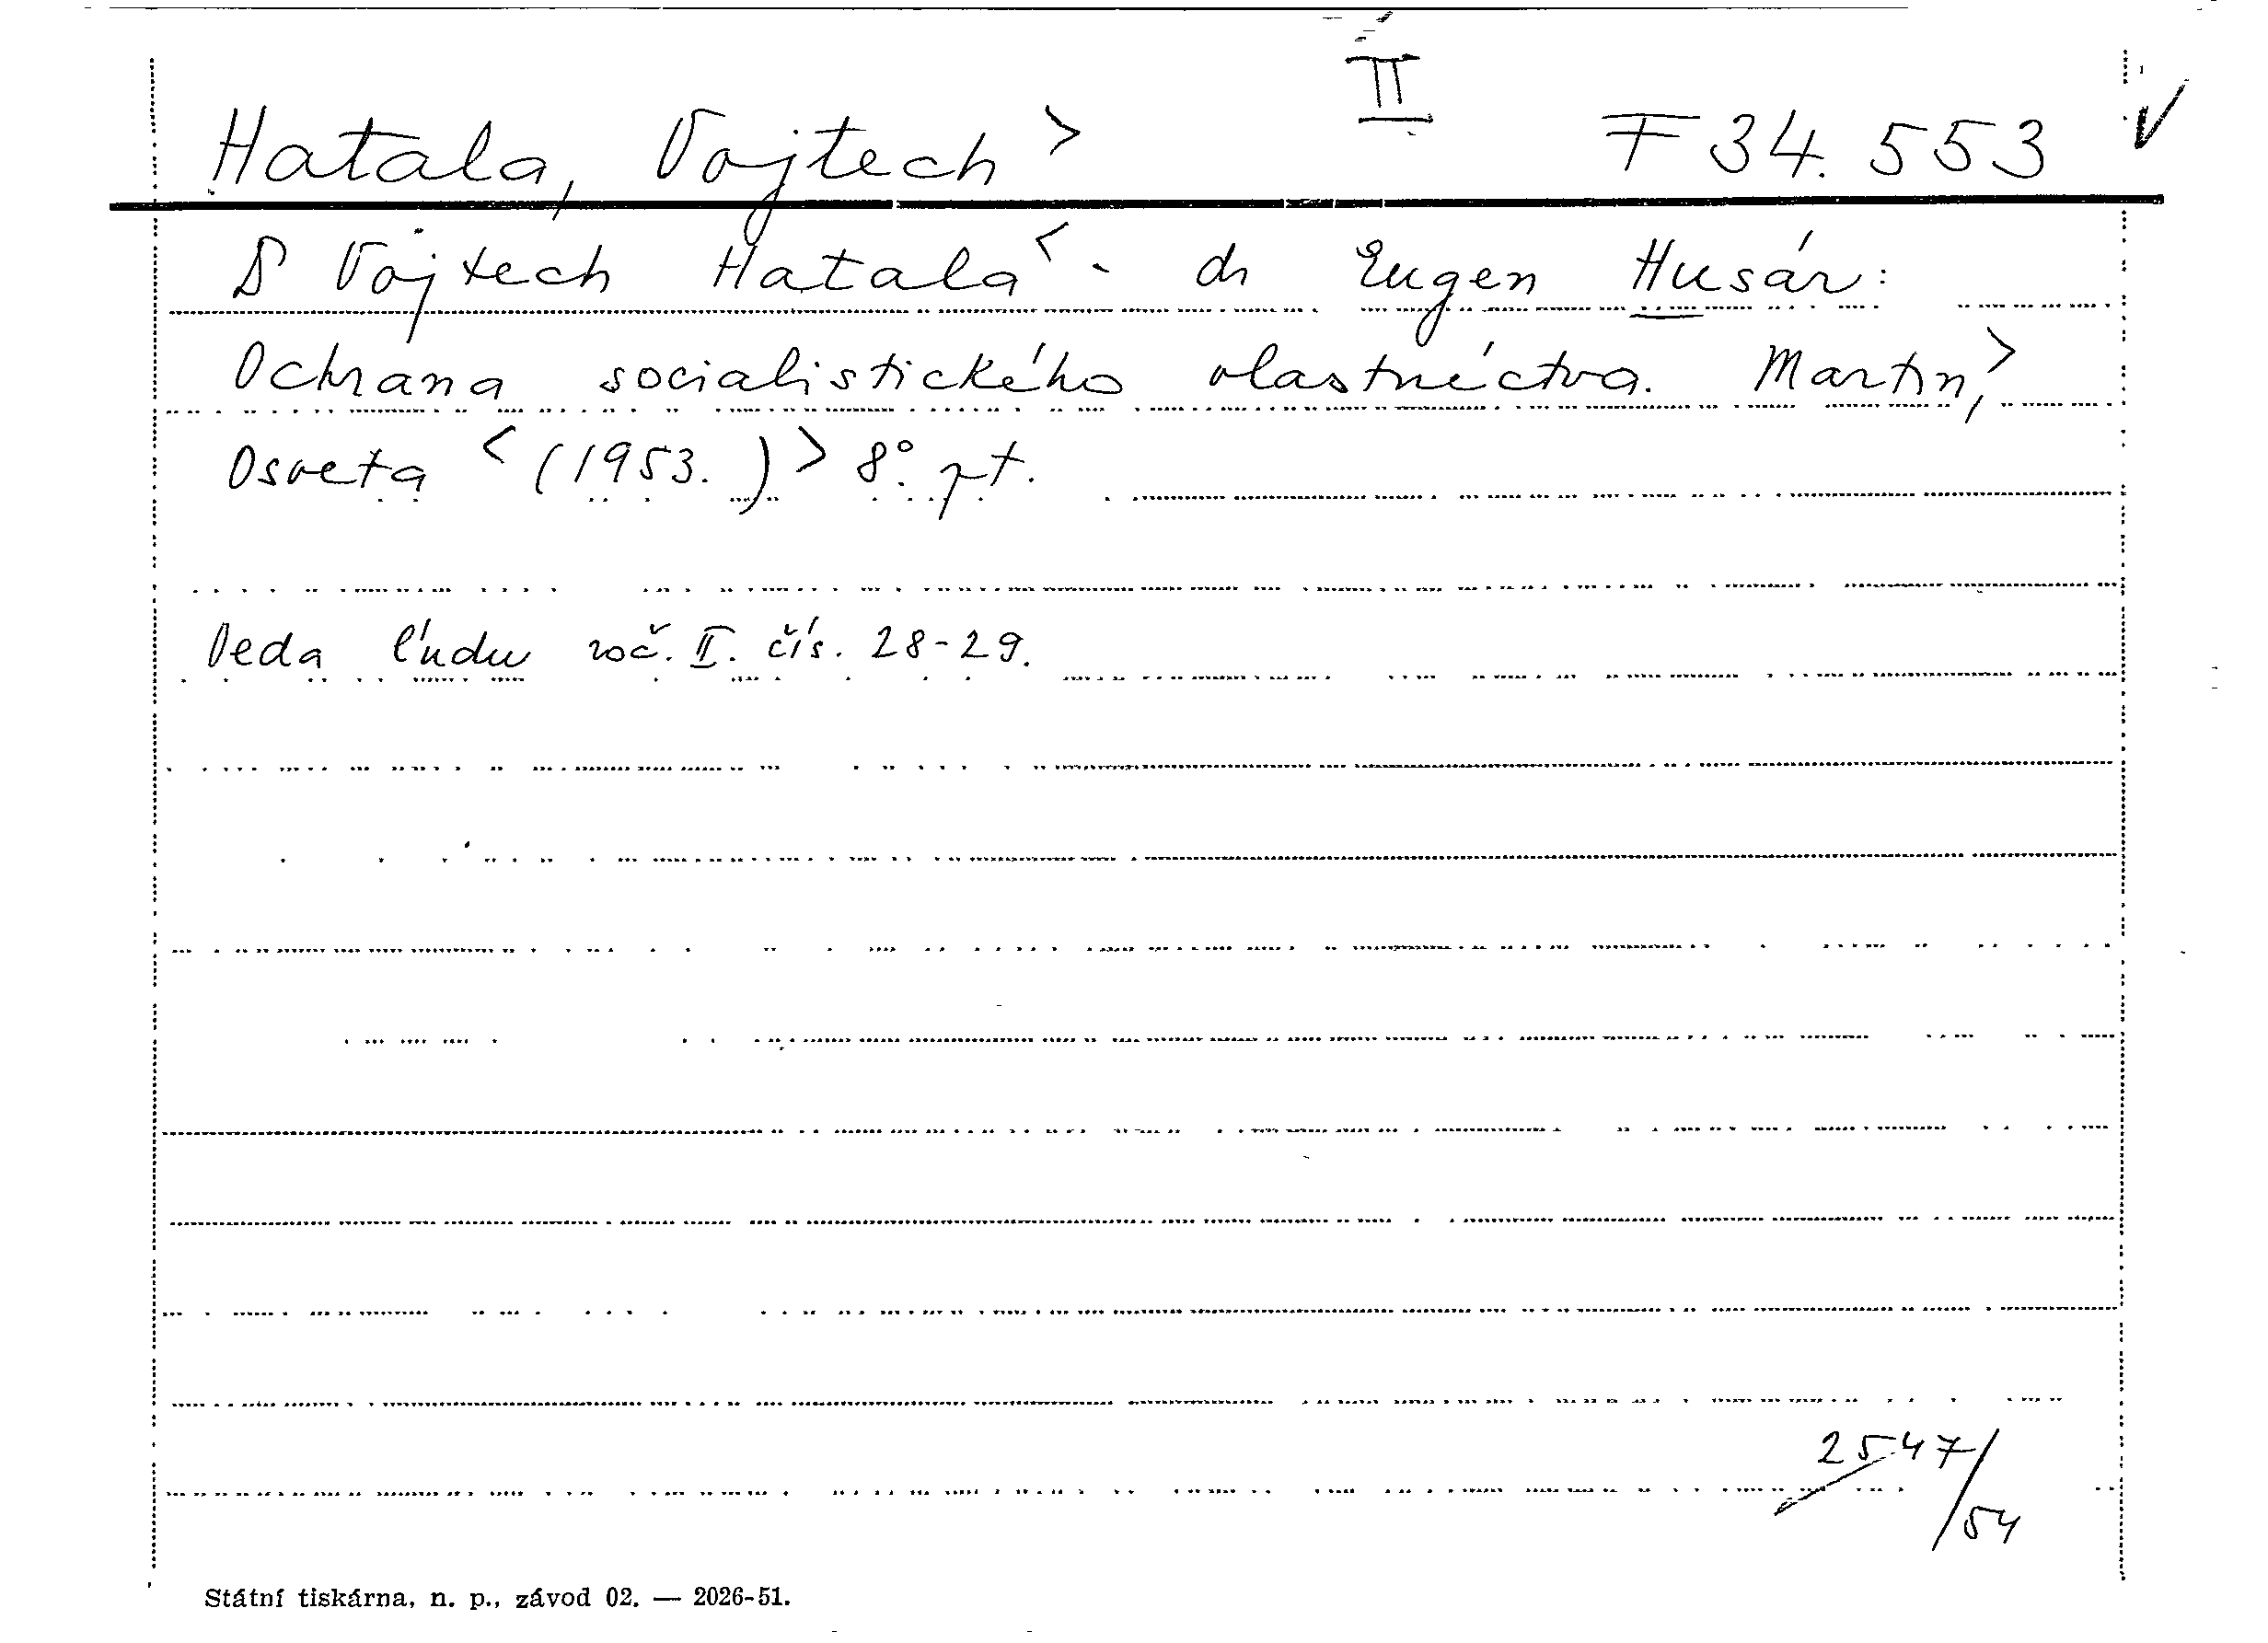 II
Hatala, Vojtech > F 34.553 V
Dr Vojtech Hatala < - dr Eugen Husár:
Ochrana socialistického vlastníctva. Martin, >
Osveta < (1953.) > 8°. pt.
Veda ľudu roč. II. čís. 28-29.
2547/54
Státní tiskárna, n. p., závod 02. — 2026-51.